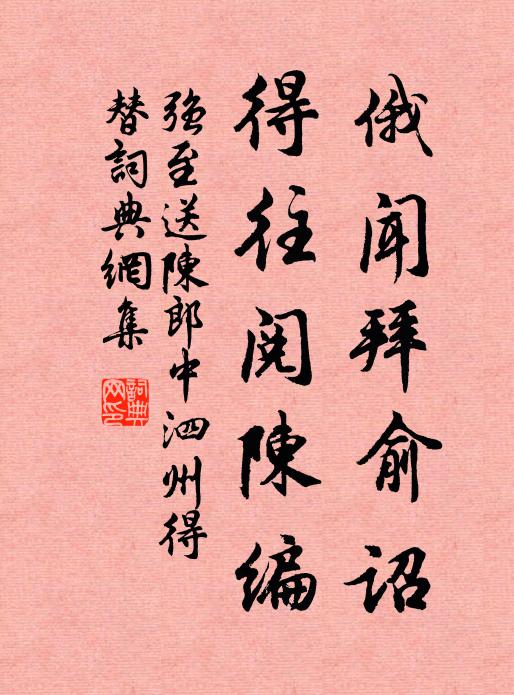 俄闻拜俞诏
得往阅陳编
强至送陳郎中泗州得
替詞典網集
詞典网印